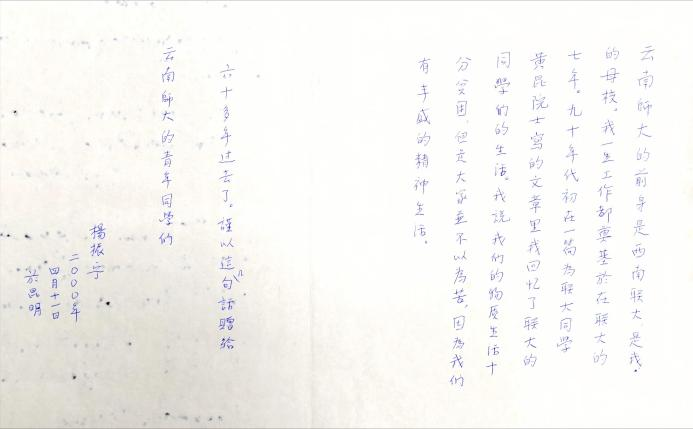 云南師大的前身是西南联大是我
的母校。我一生工作都奠基於在联大的
七年。九十年代初在一篇为联大同學
黄昆院士寫的文章里我回忆了联大的
同學们的生活。我説我们的物质生活十
分贫困,但是大家並不以為苦,因為我们
有丰盛的精神生活。
六十多年过去了。謹以這句話贈给
云南師大的青年同學们
楊振宁
二〇〇〇年
四月十一日
於昆明